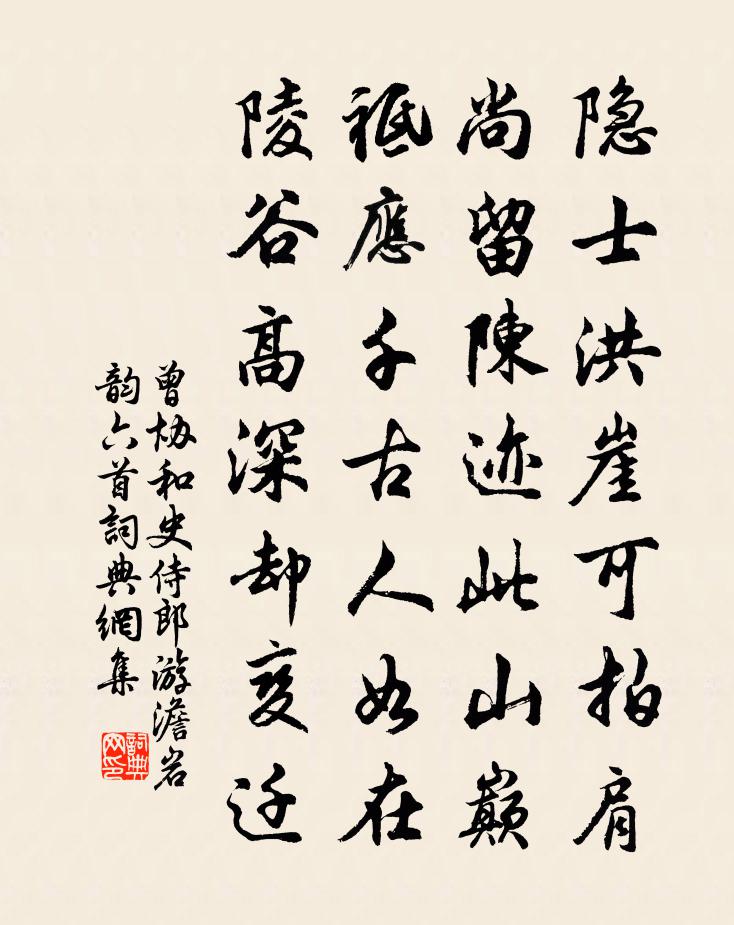 隐士洪崖可拍肩
尚留陳迹此山巔
祗應千古人如在
陵谷高深却变迁
曾协和史侍郎游澹岩
韵六首詞典網集
詞典网印